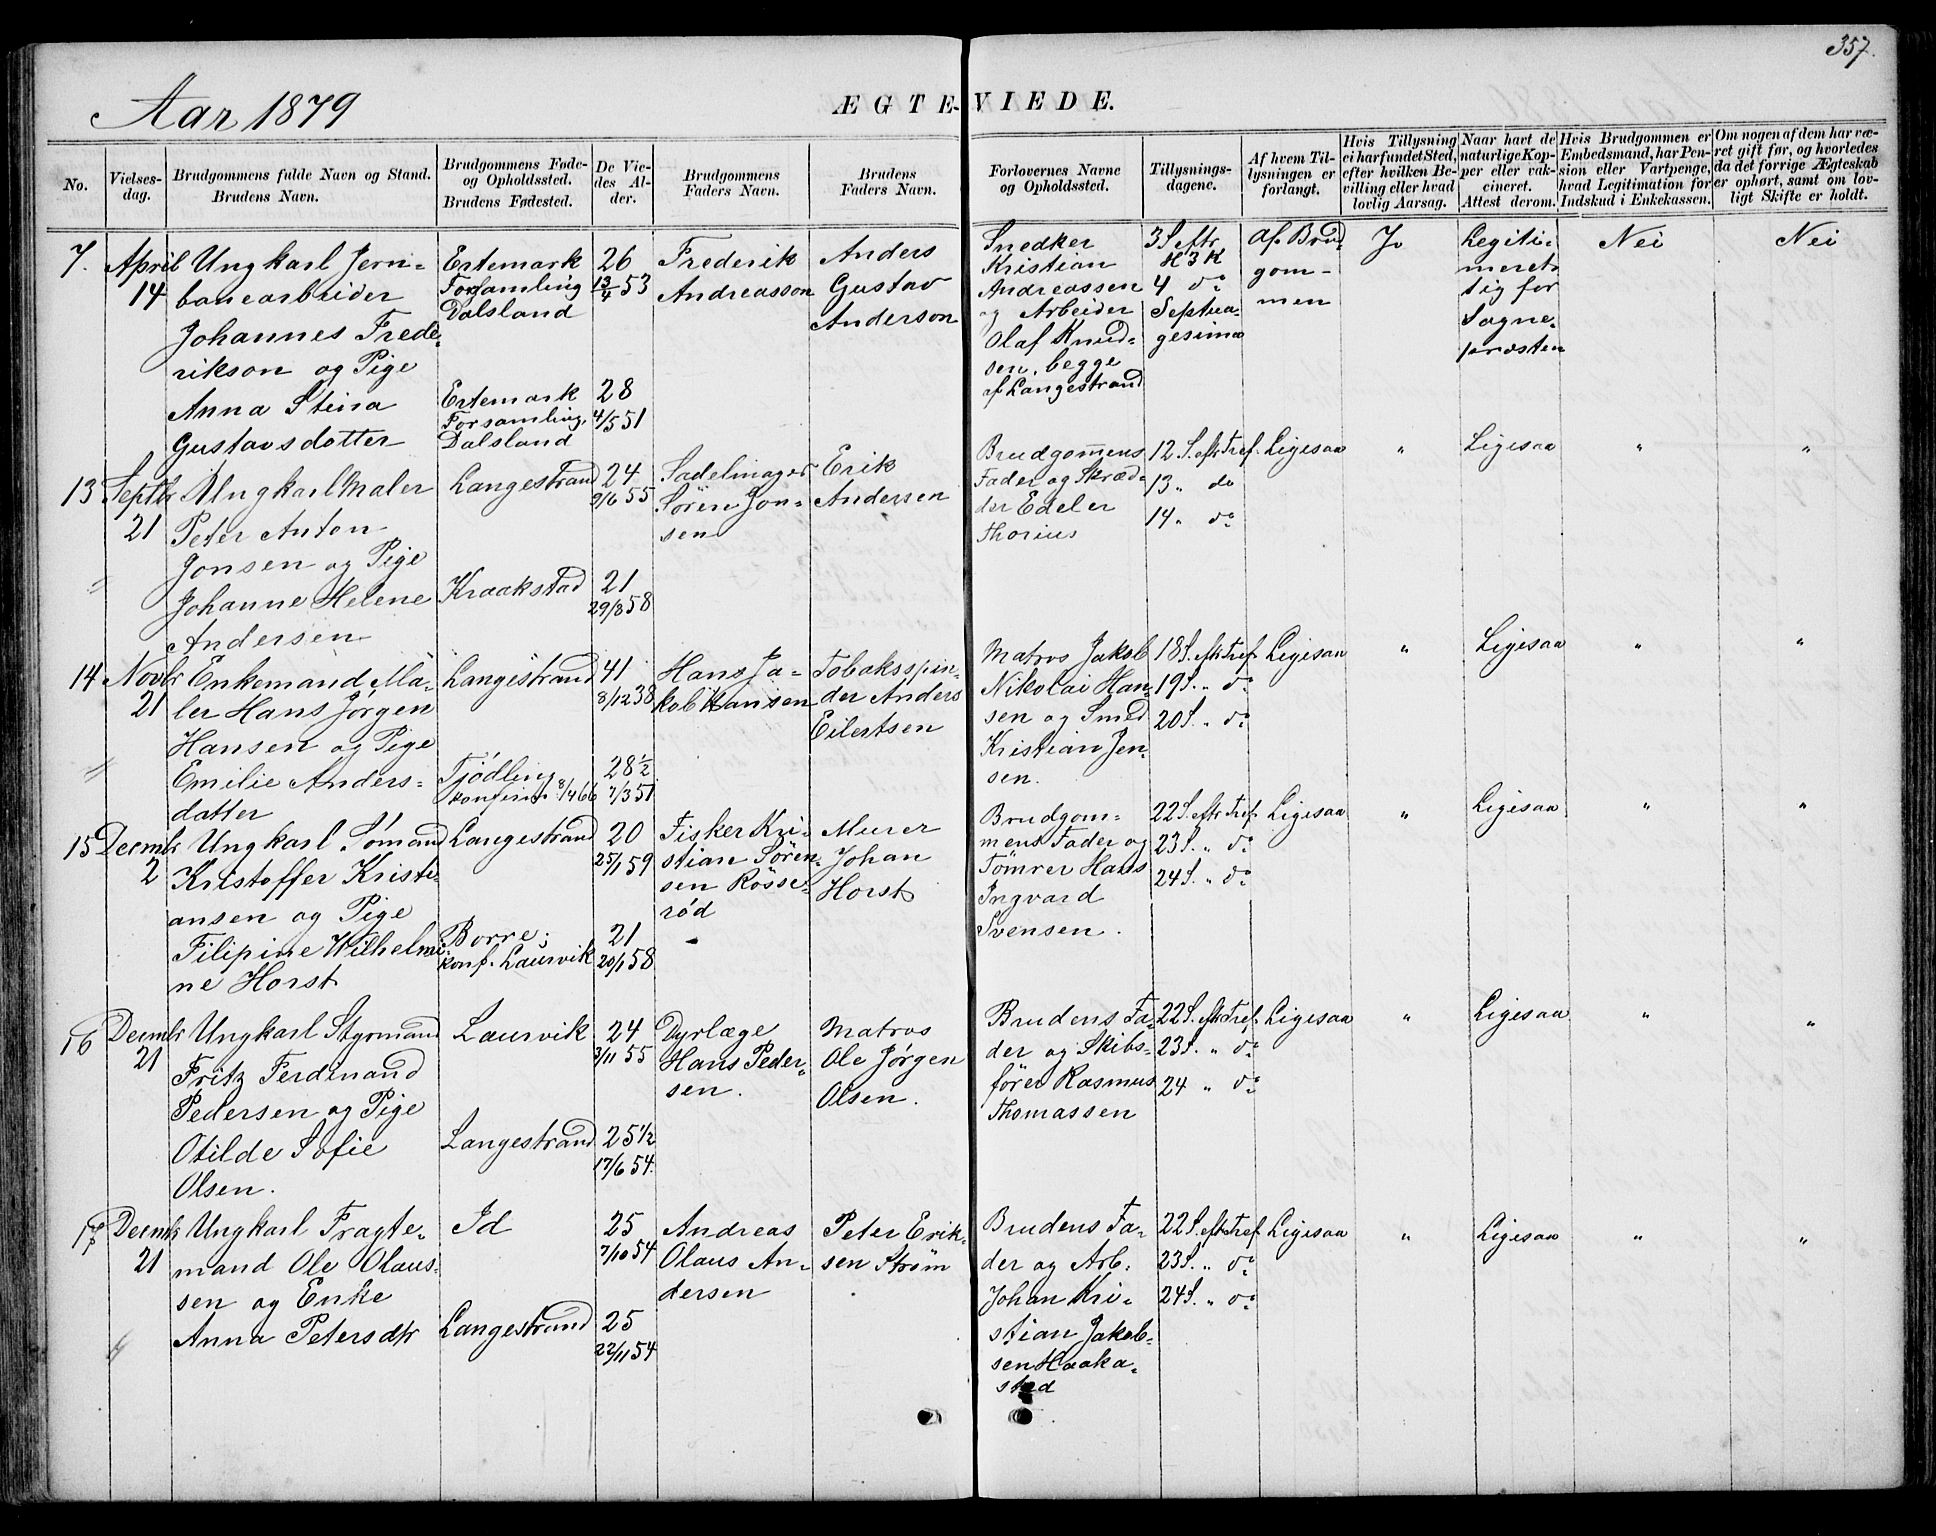 357.
Aar 1879
ÆGTEVIEDE.
No.
Vielses-
dag.
Brudgommens fulde Navn og Stand.
Brudens Navn.
Brudgommens Føde-
og Opholdssted.
Brudens Fødested.
De Vie-
des Al-
der.
Brudgommens
Faders Navn.
Brudens
Faders Navn.
Forlovernes Navne
og Opholdssted.
Tillysnings-
dagene.
Af hvem Til-
lysningen er
forlangt.
Hvis Tillysning
ei har fundet Sted,
efter hvilken Be-
villing eller hvad
lovlig Aarsag.
Naar havt de
naturlige Kop-
per eller vak-
cineret.
Attest derom.
Hvis Brudgommen er
Embedsmand, har Pen-
sion eller Vartpenge,
hvad Legitimation for
Indskud i Enkekassen.
Om nogen af dem har væ-
ret gift før, og hvorledes
da det forrige Ægteskab
er ophørt, samt om lov-
ligt Skifte er holdt.
7.
April
14
Ungkarl Jern-
banearbeider
Johannes Frede-
rikson og Pige
Anna Stina
Gustavsdotter
Ertemark
Forsamling
Dalsland
Ertemark
Forsamling,
Dalsland
26
13/4 53
28
4/5 51
Frederik
Andreasson
Anders
Gustav
Anderson
Snedker
Kristian
Andreassen
og Arbeider
Olaf Knud-
sen, begge
af Langestrand
3 S eftr.
H 3 K
4 do
Septua-
gesima
af Brud
gom-
men
Legiti-
meret
sig for
Sogne-
præsten
Nei
Nei
13
Septbr
21
Ungkarl Maler
Peter Anton
Jonsen og Pige
Johanne Helene
Andersen
Langestrand
Kraakstad
24
9/6 55
21
29/8 58
Sadelmager
Sören Jon-
sen
Erik
Andersen
Brudgommens
Fader og Skræd-
der Edeler
Thorius
12 S. eftr Tref.
13 „ do
14 „ do
Ligesaa
"
Ligesaa
"
"
14
Novbr
21
Enkemand Ma-
ler Hans Jörgen
Hansen og Pige
Emilie Anders-
datter
Langestrand
Tjödling
konfirm. 8/4 66
41
8/12 38
28½
7/3 51
Hans Ja-
kob Hansen
Tobaksspin-
der Anders
Eilertsen
Matros Jakob
Nikolai Han-
sen og Smed
Kristian Jen-
sen.
18 S. eftr Tref
19 S. „ do
20 S. „ do
Ligesaa
"
Ligesaa
"
"
15
Decmbr
2
Ungkarl Sömand
Kristoffer Kristi-
ansen og Pige
Filipine Wilhelmi-
ne Horst
Langestrand
Borre;
konf. Laurvik
20
25/1 59
21
20/1 58
Fisker Kri-
stian Sören-
sen Rösse-
röd
Murer
Johan
Horst
Brudgom-
mens Fader og
Tömrer Hans
Ingvard
Svensen.
22 S. eftr Tref.
23 S. „ do
24 S. „ do
Ligesaa
"
Ligesaa
"
"
16
Decmbr
21
Ungkarl Styrmand
Fritz Ferdinand
Pedersen og Pige
Otilde Sofie
Olsen.
Laurvik
Langestrand
24
3/11 55
25½
17/6 54.
Dyrlæge
Hans Peder-
sen.
Matros
Ole Jörgen
Olsen.
Brudens Fa-
der og Skibs-
förer Rasmus
Thomassen
22 S. eftr Tref.
23 S. „ do
24 „ do
Ligesaa
"
Ligesaa
"
"
17
Decmbr
21
Ungkarl Fragte-
mand Ole Olaus-
sen og Enke
Anna Petersdtr
Id
Langestrand
25
7/10 54
25
22/11 54
Andreas
Olaus An-
dersen
Peter Erik-
sen Ström
Brudens Fa-
der og Arb.
Johan Kri-
stian Jakob-
sen Haaka-
stad
22 S. eftr Tref
23 S. „ do
24 S. „ do
Ligesaa
"
Ligesaa
"
"